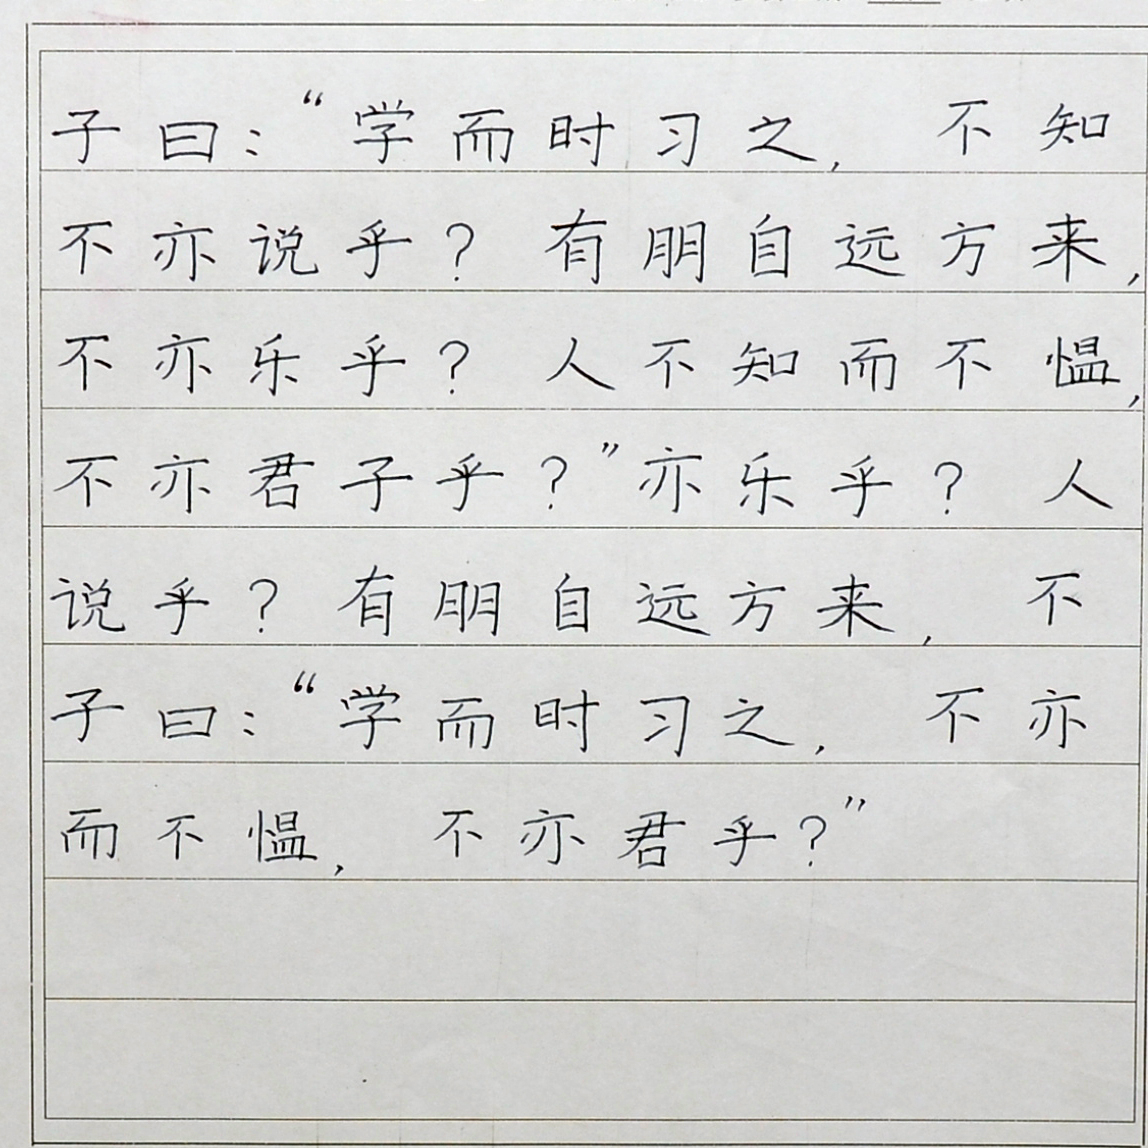 子曰：“学而时习之，不知
不亦说乎？有朋自远方来，
不亦乐乎？人不知而不愠，
不亦君子乎？”亦乐乎？人
说乎？有朋自远方来，不
子曰：“学而时习之，不亦
而不愠，不亦君乎？”